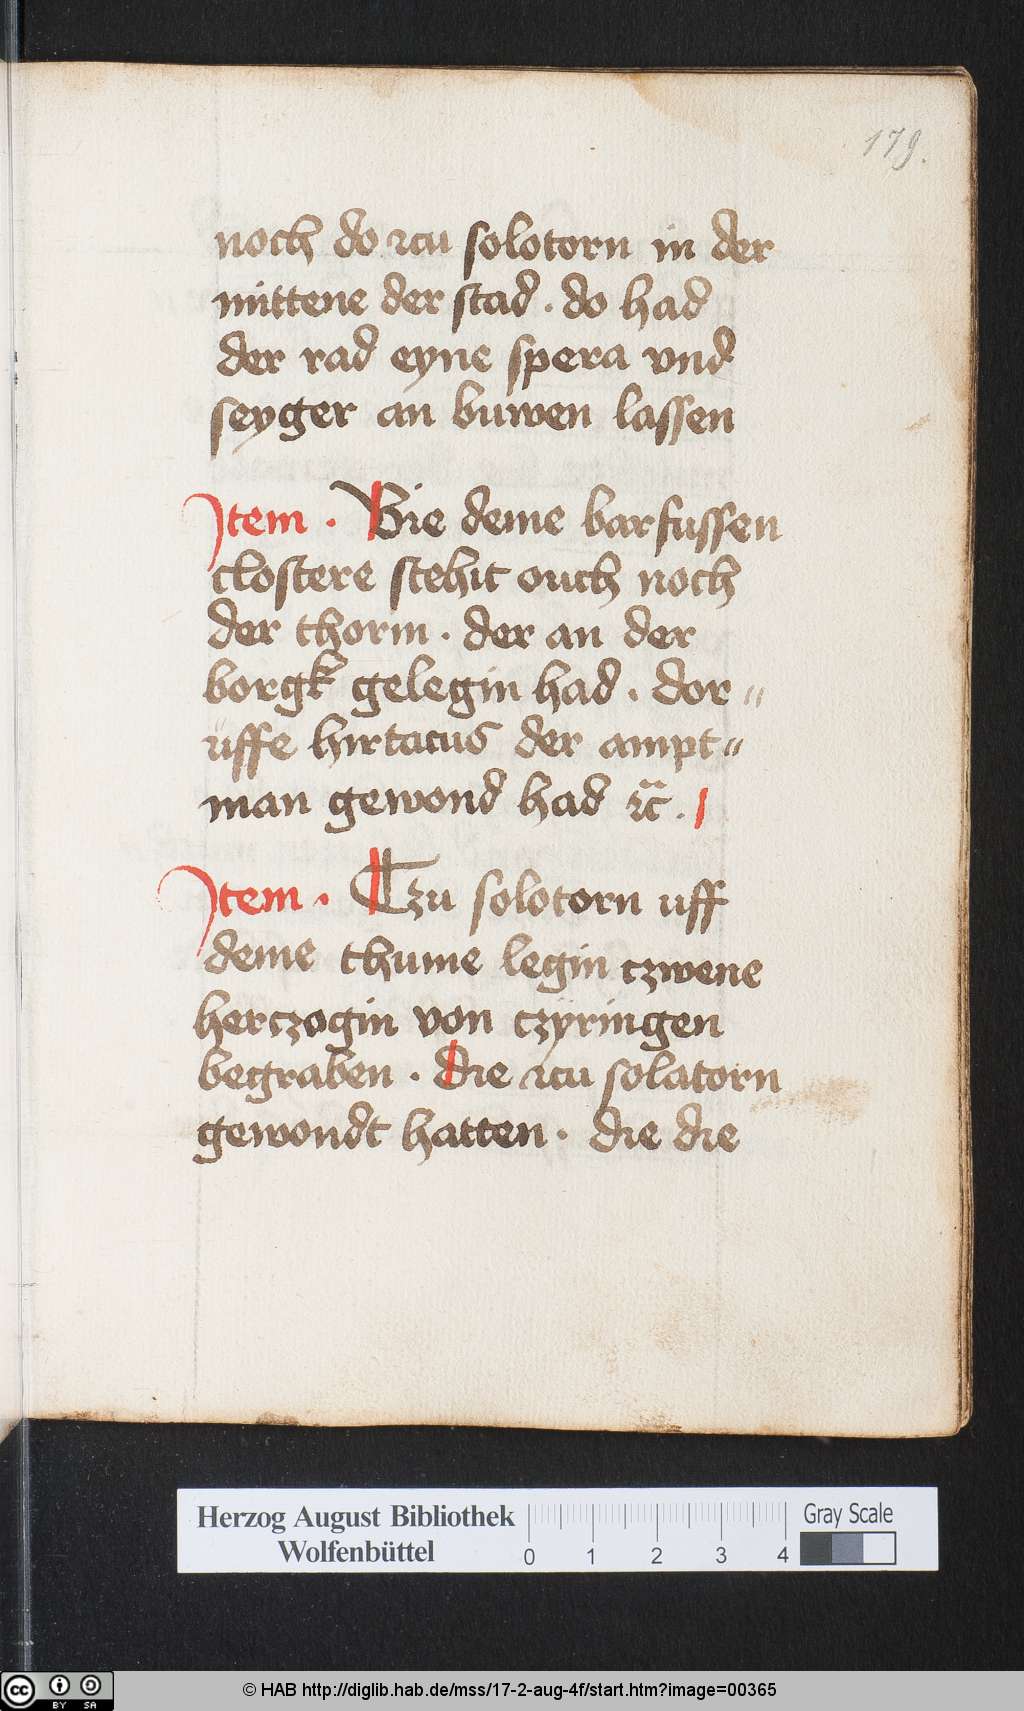 179.
noch do zcu solotorn in der
mittene der stad . do had
der rad eyne spera vnd
seyger an buwen lassen
Item . Bie deme barfussen
clostere stehit ouch noch
der thorm . der an der
borgk gelegin had . dor〃
uffe hirtacus der ampt〃
man gewond had ꝛc̃ .
Item . Czu solotorn uff
deme thume legin czwene
herczogin von czÿringen
begraben . die zcu solatorn
gewondt hatten . die die
Herzog August Bibliothek
Wolfenbüttel
0 1 2 3 4
Gray Scale
cc BY SA
© HAB http://diglib.hab.de/mss/17-2-aug-4f/start.htm?image=00365